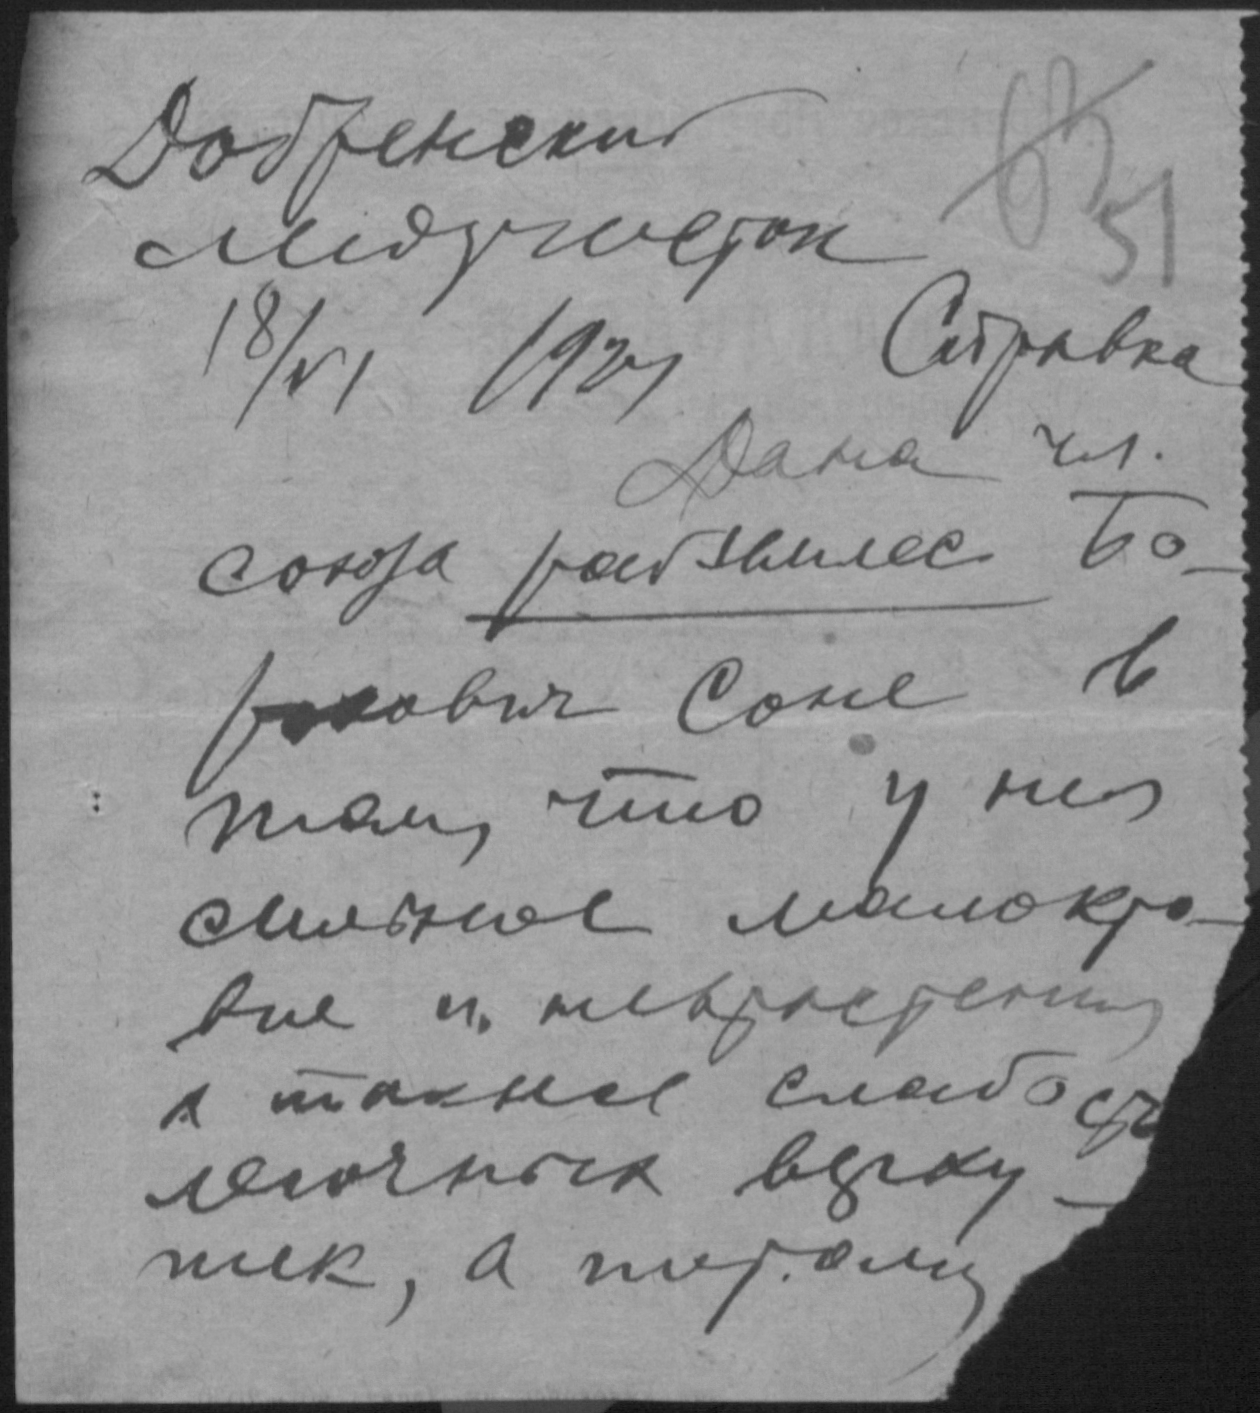 Добренский
медучасток
63 51
18/VI 192
Справка
Дана чл.
союза рабземлес Бо-
рохович Соне в
том, что у нея
сильное малокро-
вие и неврастения
а также слабость
легочных верху-
шек, а потому